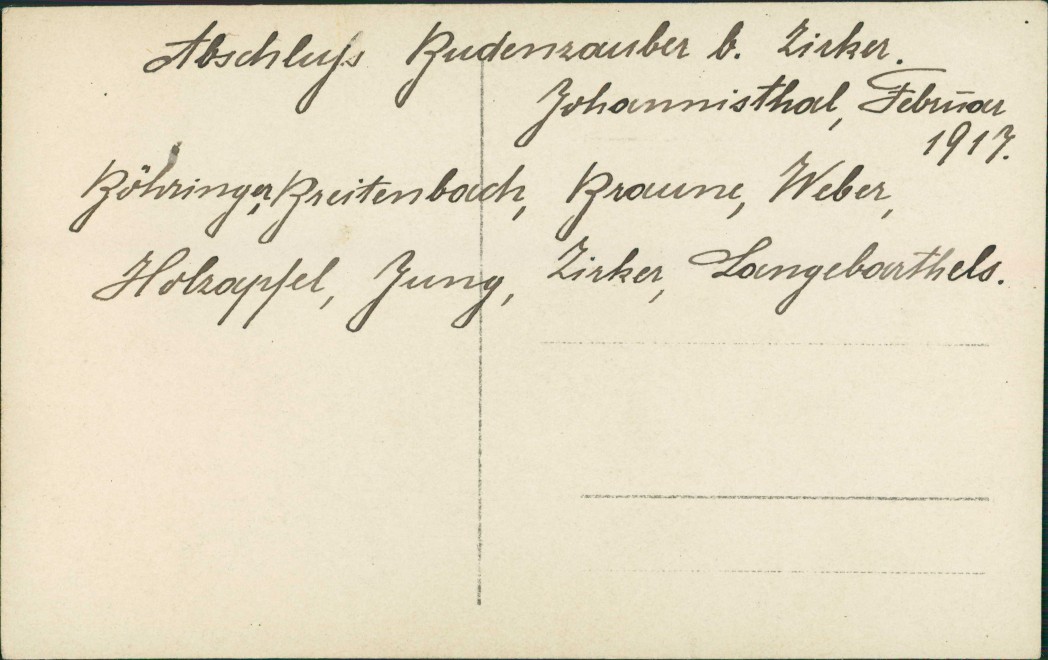 Abschluss Budenzauber b. Zirker.
Johannisthal, Februar
1917.
Böhringer, Breitenbach, Braune, Weber,
Holzapfel, Jung, Zirker, Langebarthels.